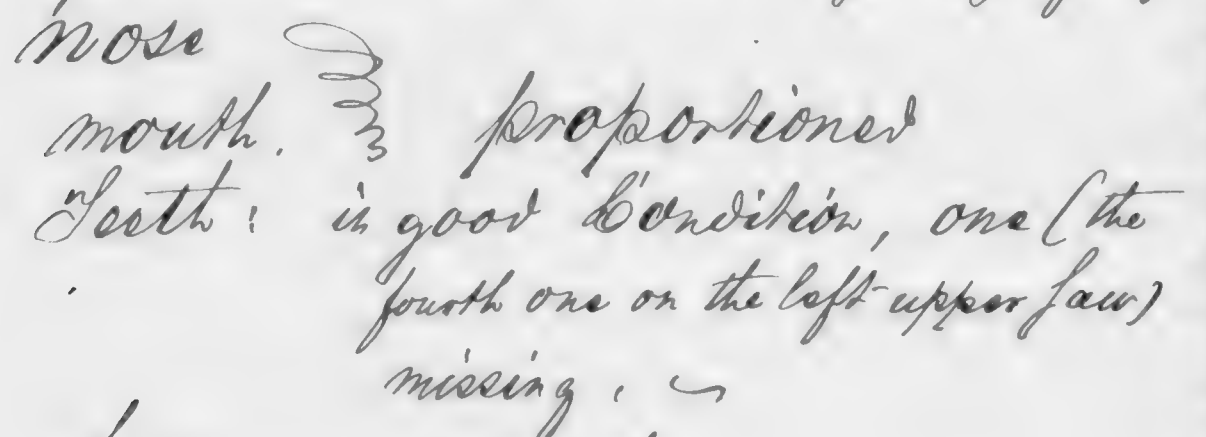 nose
mouth. proportioned
Teeth: in good Condition, one (the
fourth one on the left upper Jaw)
missing.